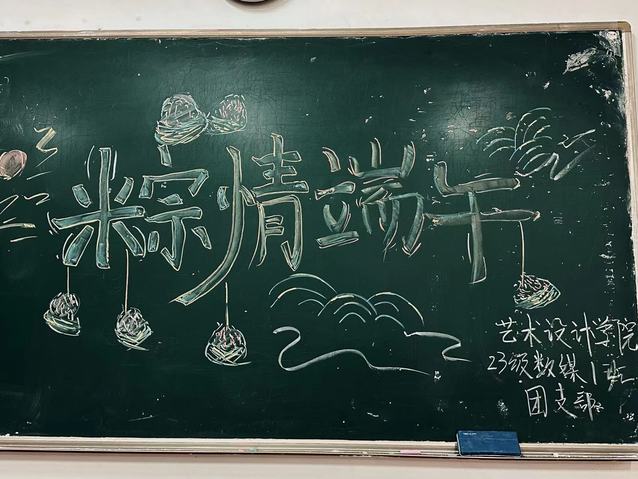 粽情端午
艺术设计学院
23级数媒1班
团支部